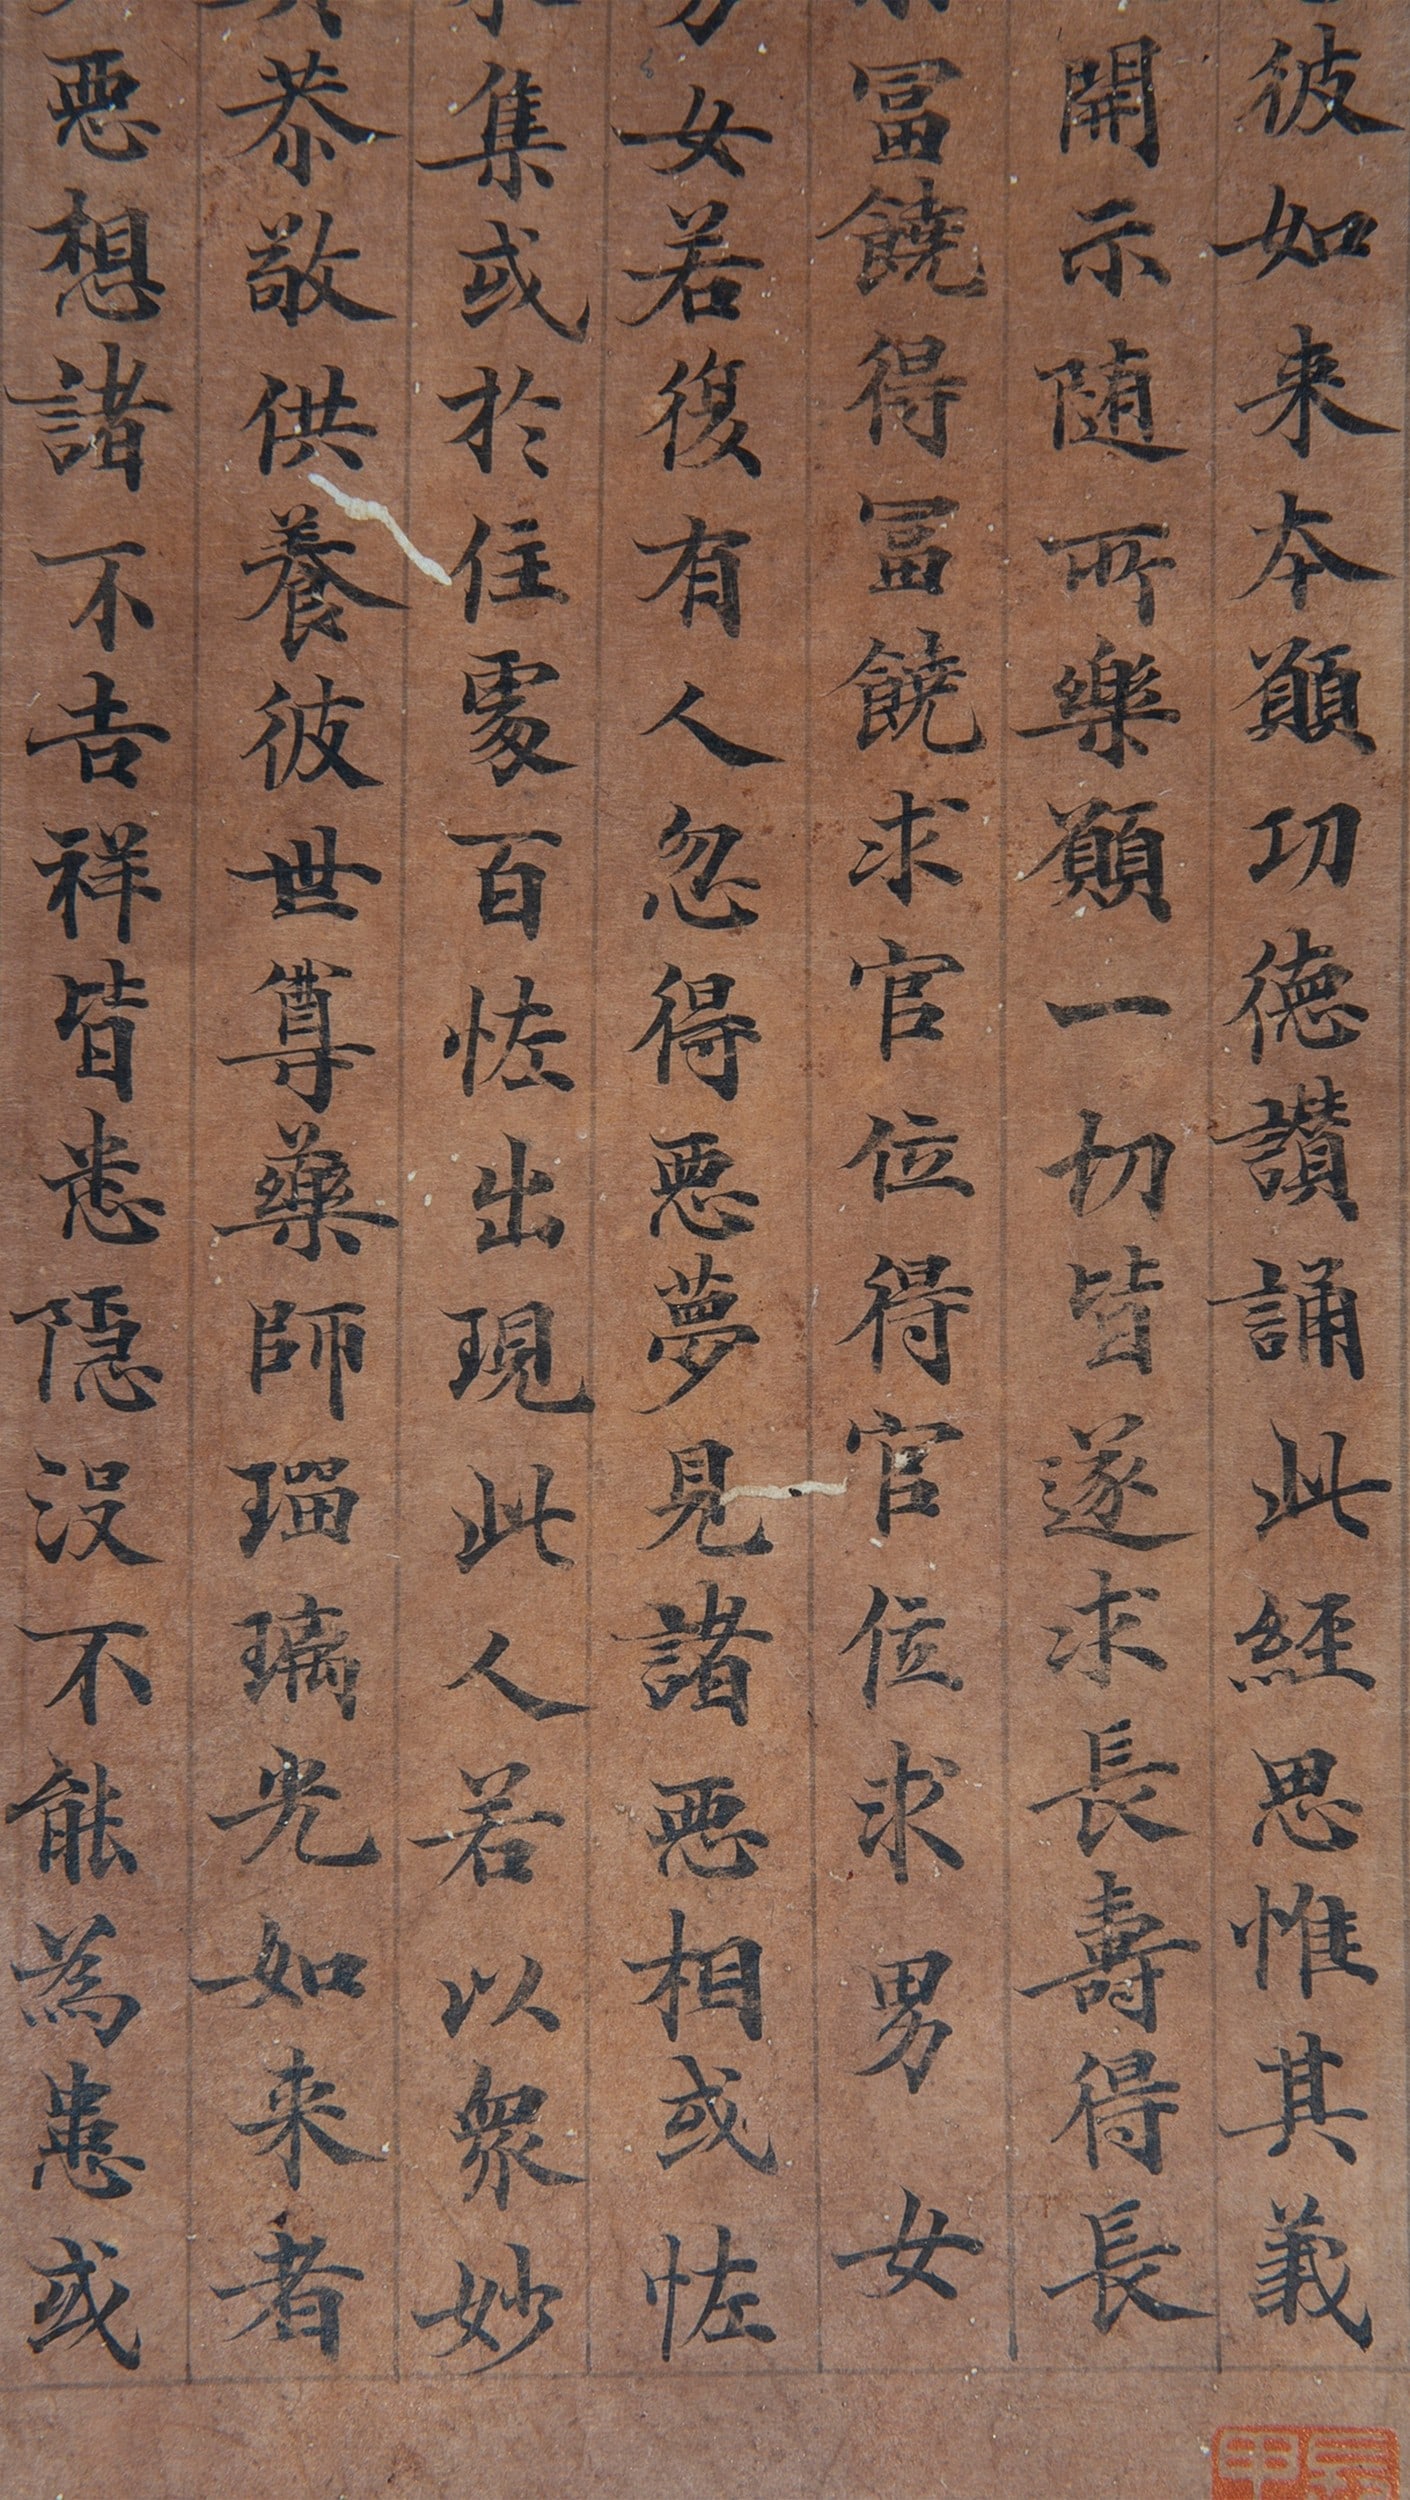 彼如来本願功德讚誦此経思惟其義
開示随所樂願一切皆遂求長壽得長
冨饒得冨饒求官位得官位求男女
女若復有人忽得惡夢見諸惡相或恠
集或於住處百恠出現此人若以衆妙
恭敬供養彼世尊藥師瑠璃光如来者
惡想諸不吉祥皆悉隱沒不能為患或